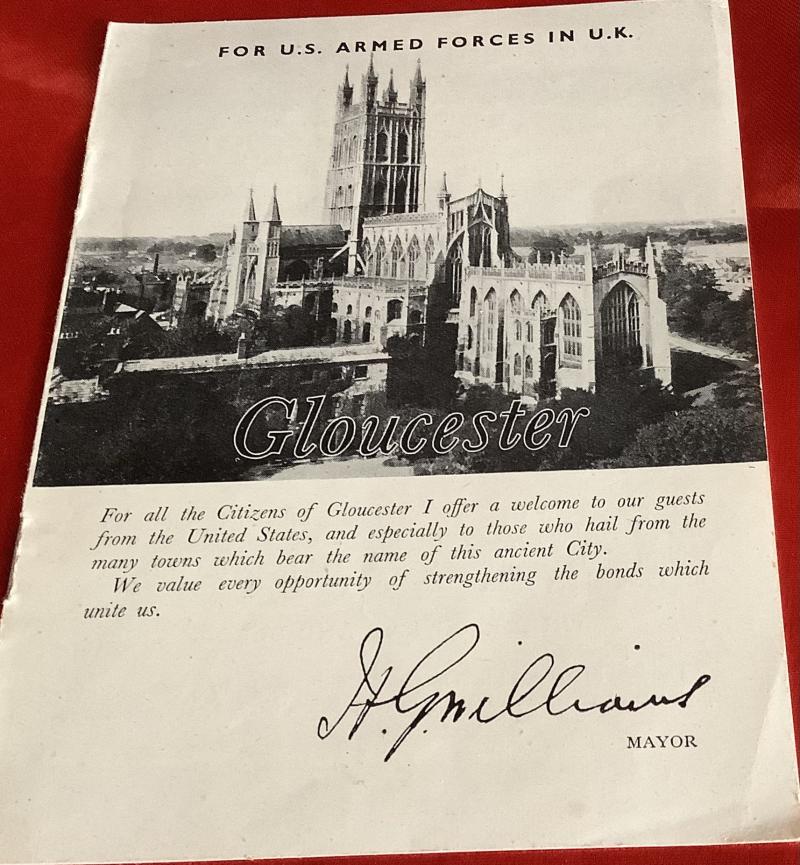 FOR U.S. ARMED FORCES IN U.K.
Gloucester
For all the Citizens of Gloucester I offer a welcome to our guests
from the United States, and especially to those who hail from the
many towns which bear the name of this ancient City.
We value every opportunity of strengthening the bonds which
unite us.
H. Gwilliams
MAYOR